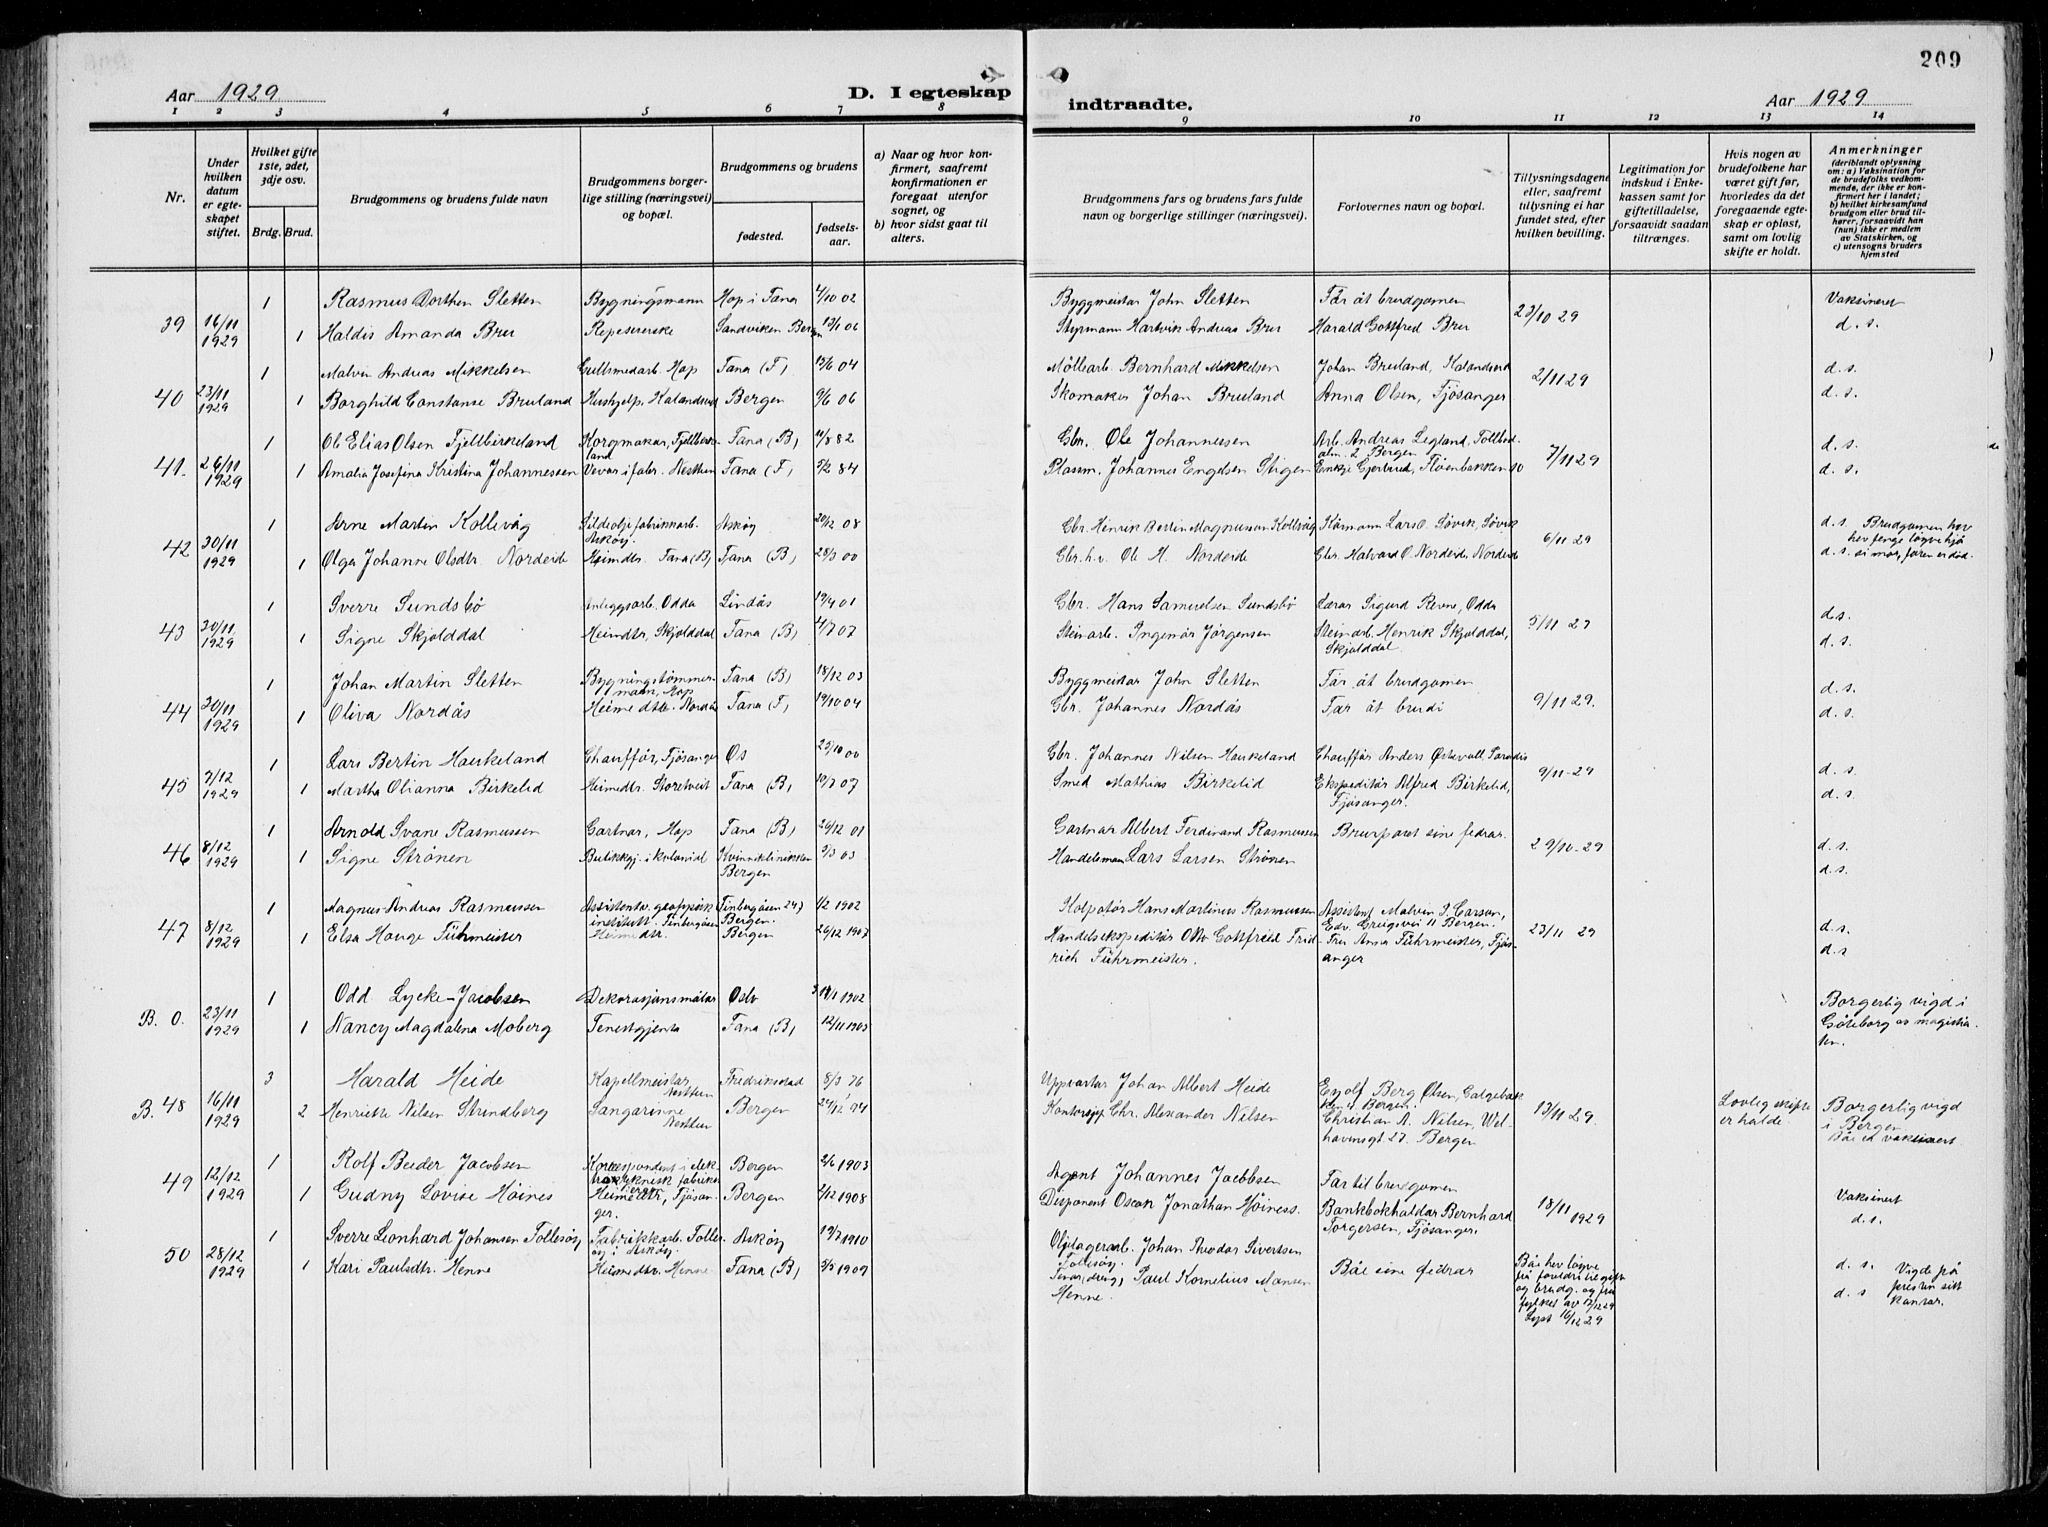 209
Aar 1929
D. I egteskap
indtraadte.
Aar 1929
1 2 3 4 5 6 7 8 9 10 11 12 13 14
Nr.
Under hvilken datum er egteskapet stiftet.
Hvilket gifte 1ste, 2det, 3dje osv.
Brdg. Brud.
Brudgommens og brudens fulde navn
Brudgommens borgerlige stilling (næringsvei) og bopæl.
Brudgommens og brudens
fødested.
fødselsaar.
a) Naar og hvor konfirmert, saafremt konfirmationen er foregaat utenfor sognet, og
b) hvor sidst gaat til alters.
Brudgommens fars og brudens fars fulde navn og borgerlige stillinger (næringsvei).
Forlovernes navn og bopæl.
Tillysningsdagene eller, saafremt tillysning ei har fundet sted, efter hvilken bevilling.
Legitimation for indskud i Enkekassen samt for giftetilladelse, forsaavidt saadan tiltrænges.
Hvis nogen av brudefolkene har været gift før, hvorledes da det foregaaende egteskap er opløst, samt om lovlig skifte er holdt.
Anmerkninger
(deriblandt oplysning om: a) Vaksination for de brudefolks vedkommende, der ikke er konfirmert her i landet; b) hvilket kirkesamfund brudgom eller brud tilhører, forsaavidt han (hun) ikke er medlem av Statskirken, og c) utensogns bruders hjemsted
39 16/11 1929
1 Rasmus Dorthen Sletten Bygningsmann Hop i Fana 4/10 02 Byggmeistar John Sletten Far åt brudgomen 23/10 29 Vaksinert
1 Haldis Amanda Brur Sandviken Bergen 13/1 06 Styrmann Hartvik Andreas Brur Harald Gottfred Brur d. s.
40 23/11 1929
1 Malvin Andreas Mikkelsen Gullsmedarb. Hop Fana (F) 13/6 04 Möllearb. Bernhard Mikkelsen Johan Bruland, Kalandseid 2/11 29 d. s.
1 Borghild Constanse Bruland Hushjelp, Kalandseid Bergen 9/6 06 Skomaker Johan Bruland Anna Olsen, Fjösanger d. s.
41. 26/11 1929
1 Ole Elias Olsen Fjellbirkeland Korgmakar, Fjellbirkeland Fana (B) 11/8 82 Gbr. Ole Johannessen Arb. Andreas Legland, Tollbodalm. 2 Bergen 7/11 29 d. s.
1 Amalia Josefina Kristina Johannessen Vevar i fabr. Nesttun Fana (F) 9/2 84 Plassm. Johannes Engelsen Stigen Enkje Gjertrud, Fløenbakken 10 d. s.
42 30/11 1929
1 Arne Martin Kollevåg Sildeoljefabrikkarb. Askøy Askøy 20/12 08 Gbr. Henrik Bertin Magnusson Kollevåg Lars O. Søvik, Søvik 6/11 29 d. s. Brudgomen hev hev fenge løgve hjå
1 Olga Johanne Olsdtr. Nordeide Heimdtr. Fana (B) Fana (B) 28/3 00 Gbr. h.v. Ole M. Nordeide Gbr. Halvard O. Nordeide, Nordeide d. s. si mor, faren er død.
43 30/11 1929
1 Sverre Sundsbö Anleggsarb. Odda Lindås 19/4 01 Gbr. Hans Samuelsen Sundsbö Lærar Sigurd Revne, Odda 5/11 29 d. s.
1 Signe Skjolddal Heimdtr. Skjolddal Fana (B) 4/7 07 Steinarb. Ingemår Jörgensen Steinarb. Henrik Skjolddal, Skjolddal d. s.
44 30/11 1929
1 Johan Martin Sletten Bygningstømmermann, Hop Fana (B) 18/12 03 Byggmeistar John Sletten Far åt brudgomen 9/11 29. d. s.
1 Oliva Nordås Heimedtr. Nordås Fana (F) 19/10 04 Gbr. Johannes Nordås Far åt brudi d. s.
45 7/12 1929
1 Lars Bertin Haukeland Chauffør, Fjösanger Os 23/10 00 Gbr. Johannes Nilsen Haukeland Chauffør Anders Østevoll, Paradis 9/11-29 d. s.
1 Martha Olianna Birkelid Heimedtr. Storetveit Fana (B) 19/7 07 Smed Mathias Birkelid Ekspeditör Alfred Birkelid, Fjösanger. d. s.
46 8/12 1929
1 Arnold Svane Rasmussen Gartnar, Hop Fana (B) 26/12 01 Gartnar Albert Ferdinand Rasmussen Brurparet sine fedrar. 29/10-29 d. s.
1 Signe Strønen Butikkgj. i kolonial Kvinneklinikken Bergen 3/3 03 Handelsmann Lars Larsen Strønen d. s.
47 8/12 1929
1 Magnus Andreas Rasmussen Assistent v. geofysisk institutt, Finbergåsen Finbergåsen 247 Bergen. 1/2 1902 Kolportør Hans Martinius Rasmussen Assistent Malvin J. Carson, Edv. Griegsvei 11 Bergen. 23/11 29 d. s.
1 Elsa Hauge Führmeister Heimedtr. Bergen 26/12 1907 Handelsekspeditör Otto Gottfried Fridrich Führmeister. Fru Anna Führmeister, Fjösanger d. s
B. 0. 23/11 1929
1 Odd Lycke-Jacobsen Dekorasjonsmålar Oslo 1902 Borgerlig vigd i Göteborg av magistraten.
1 Nancy Magdalena Moberg Tenestgjenta Fana (B) 12/11 1903
B. 48 16/11 1929
3 Harald Heide Kapellmeistar Nesttun Fredrikstad 8/3 76 Uppvartar Johan Albert Heide Eyolf Berg Olsen, Galgebakken 4 Bergen. 13/11 29. Lovleg skifte er halde. Borgerlig vigd i Bergen
2 Henriette Nilsen Strindberg Sangarinne Nesttun Bergen 24/12 94 Kontorsjef Chr. Alexander Nilsen Christian A. Nilsen, Welhavensgt 27. Bergen Båe er vaksinert
49 12/12 1929
1 Rolf Beder Jacobsen Korrespondent i elektroteknisk fabrikk Bergen 2/6 1903 Agent Johannes Jacobsen Far til brudgomen 18/11 1929 Vaksinert
1 Gudny Lovise Höines Heimedtr, Fjösanger. Bergen 2/12 1908 Disponent Oscar Jonathan Höiness. Bankbokhaldar Bernhard Torgersen, Fjösanger. d. s.
50 28/12 1929
1 Sverre Leonhard Johansen Follesøy Fabrikkarb. Follesøy i Askøy Askøy 19/7 1910 Oljelagerarb. Johan Theodor Sivertsen Follesøy. Båe sine fedrar Båe hev løgve frå foreldri til gifte og brudg. og frå fylket av 7/12 29 Lyst 16/12 29 d. s. Vigde på presten sitt kontor.
1 Kari Paulsdtr. Henne Heimedtr. Henne Fana (B) 3/5 1909 Paul Kornelius Monsen Henne. d. s